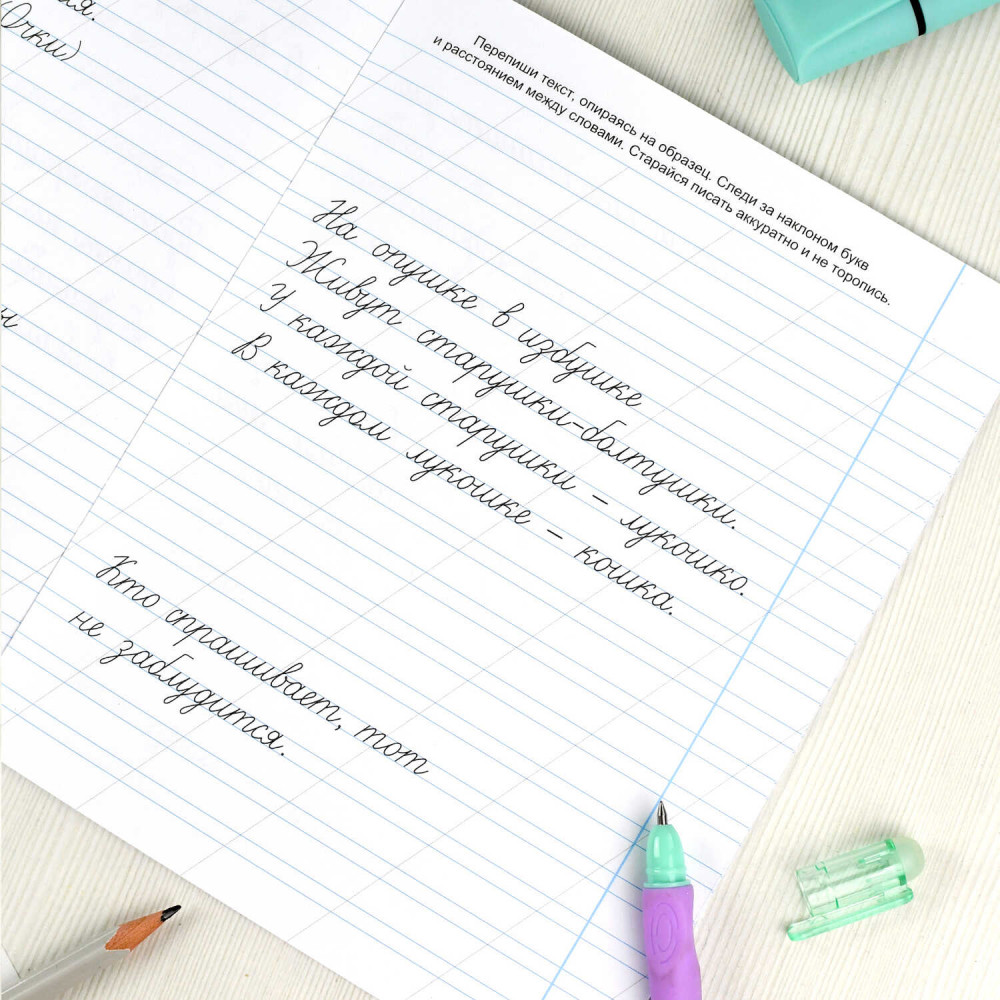 (Очки)
Перепиши текст, опираясь на образец. Следи за наклоном букв
и расстоянием между словами. Старайся писать аккуратно и не торопись.
На опушке в избушке
Живут старушки-болтушки.
У каждой старушки – лукошко.
В каждом лукошке – кошка.
Кто спрашивает, тот
не заблудится.